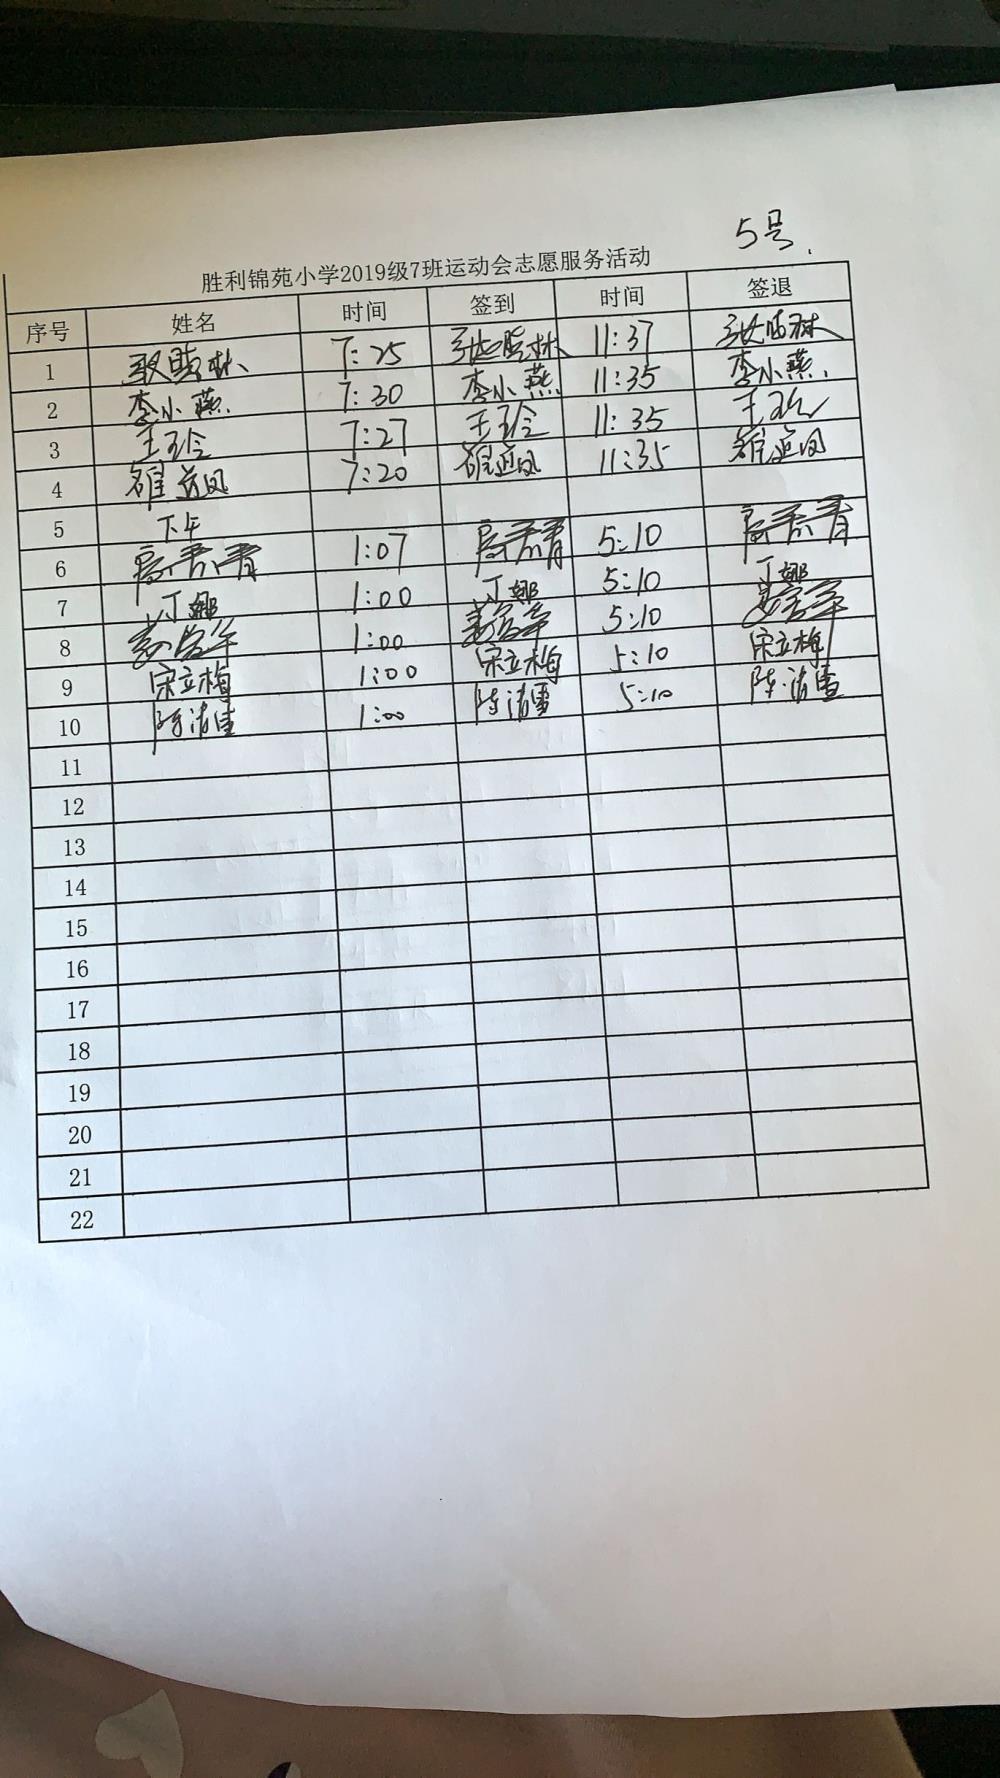 5号
胜利锦苑小学2019级7班运动会志愿服务活动
序号 姓名 时间 签到 时间 签退
1 7:25 11:37
2 李小燕 7:30 李小燕 11:35 李小燕
3 王玉玲 7:27 王玉玲 11:35 王玉玲
4 7:20 11:35
5 下午
6 1:07 5:10
7 丁娜 1:00 丁娜 5:10 丁娜
8 1:00 5:10
9 宋立梅 1:00 宋立梅 5:10 宋立梅
10 陈清雪 1:00 陈清雪 5:10 陈清雪
11
12
13
14
15
16
17
18
19
20
21
22